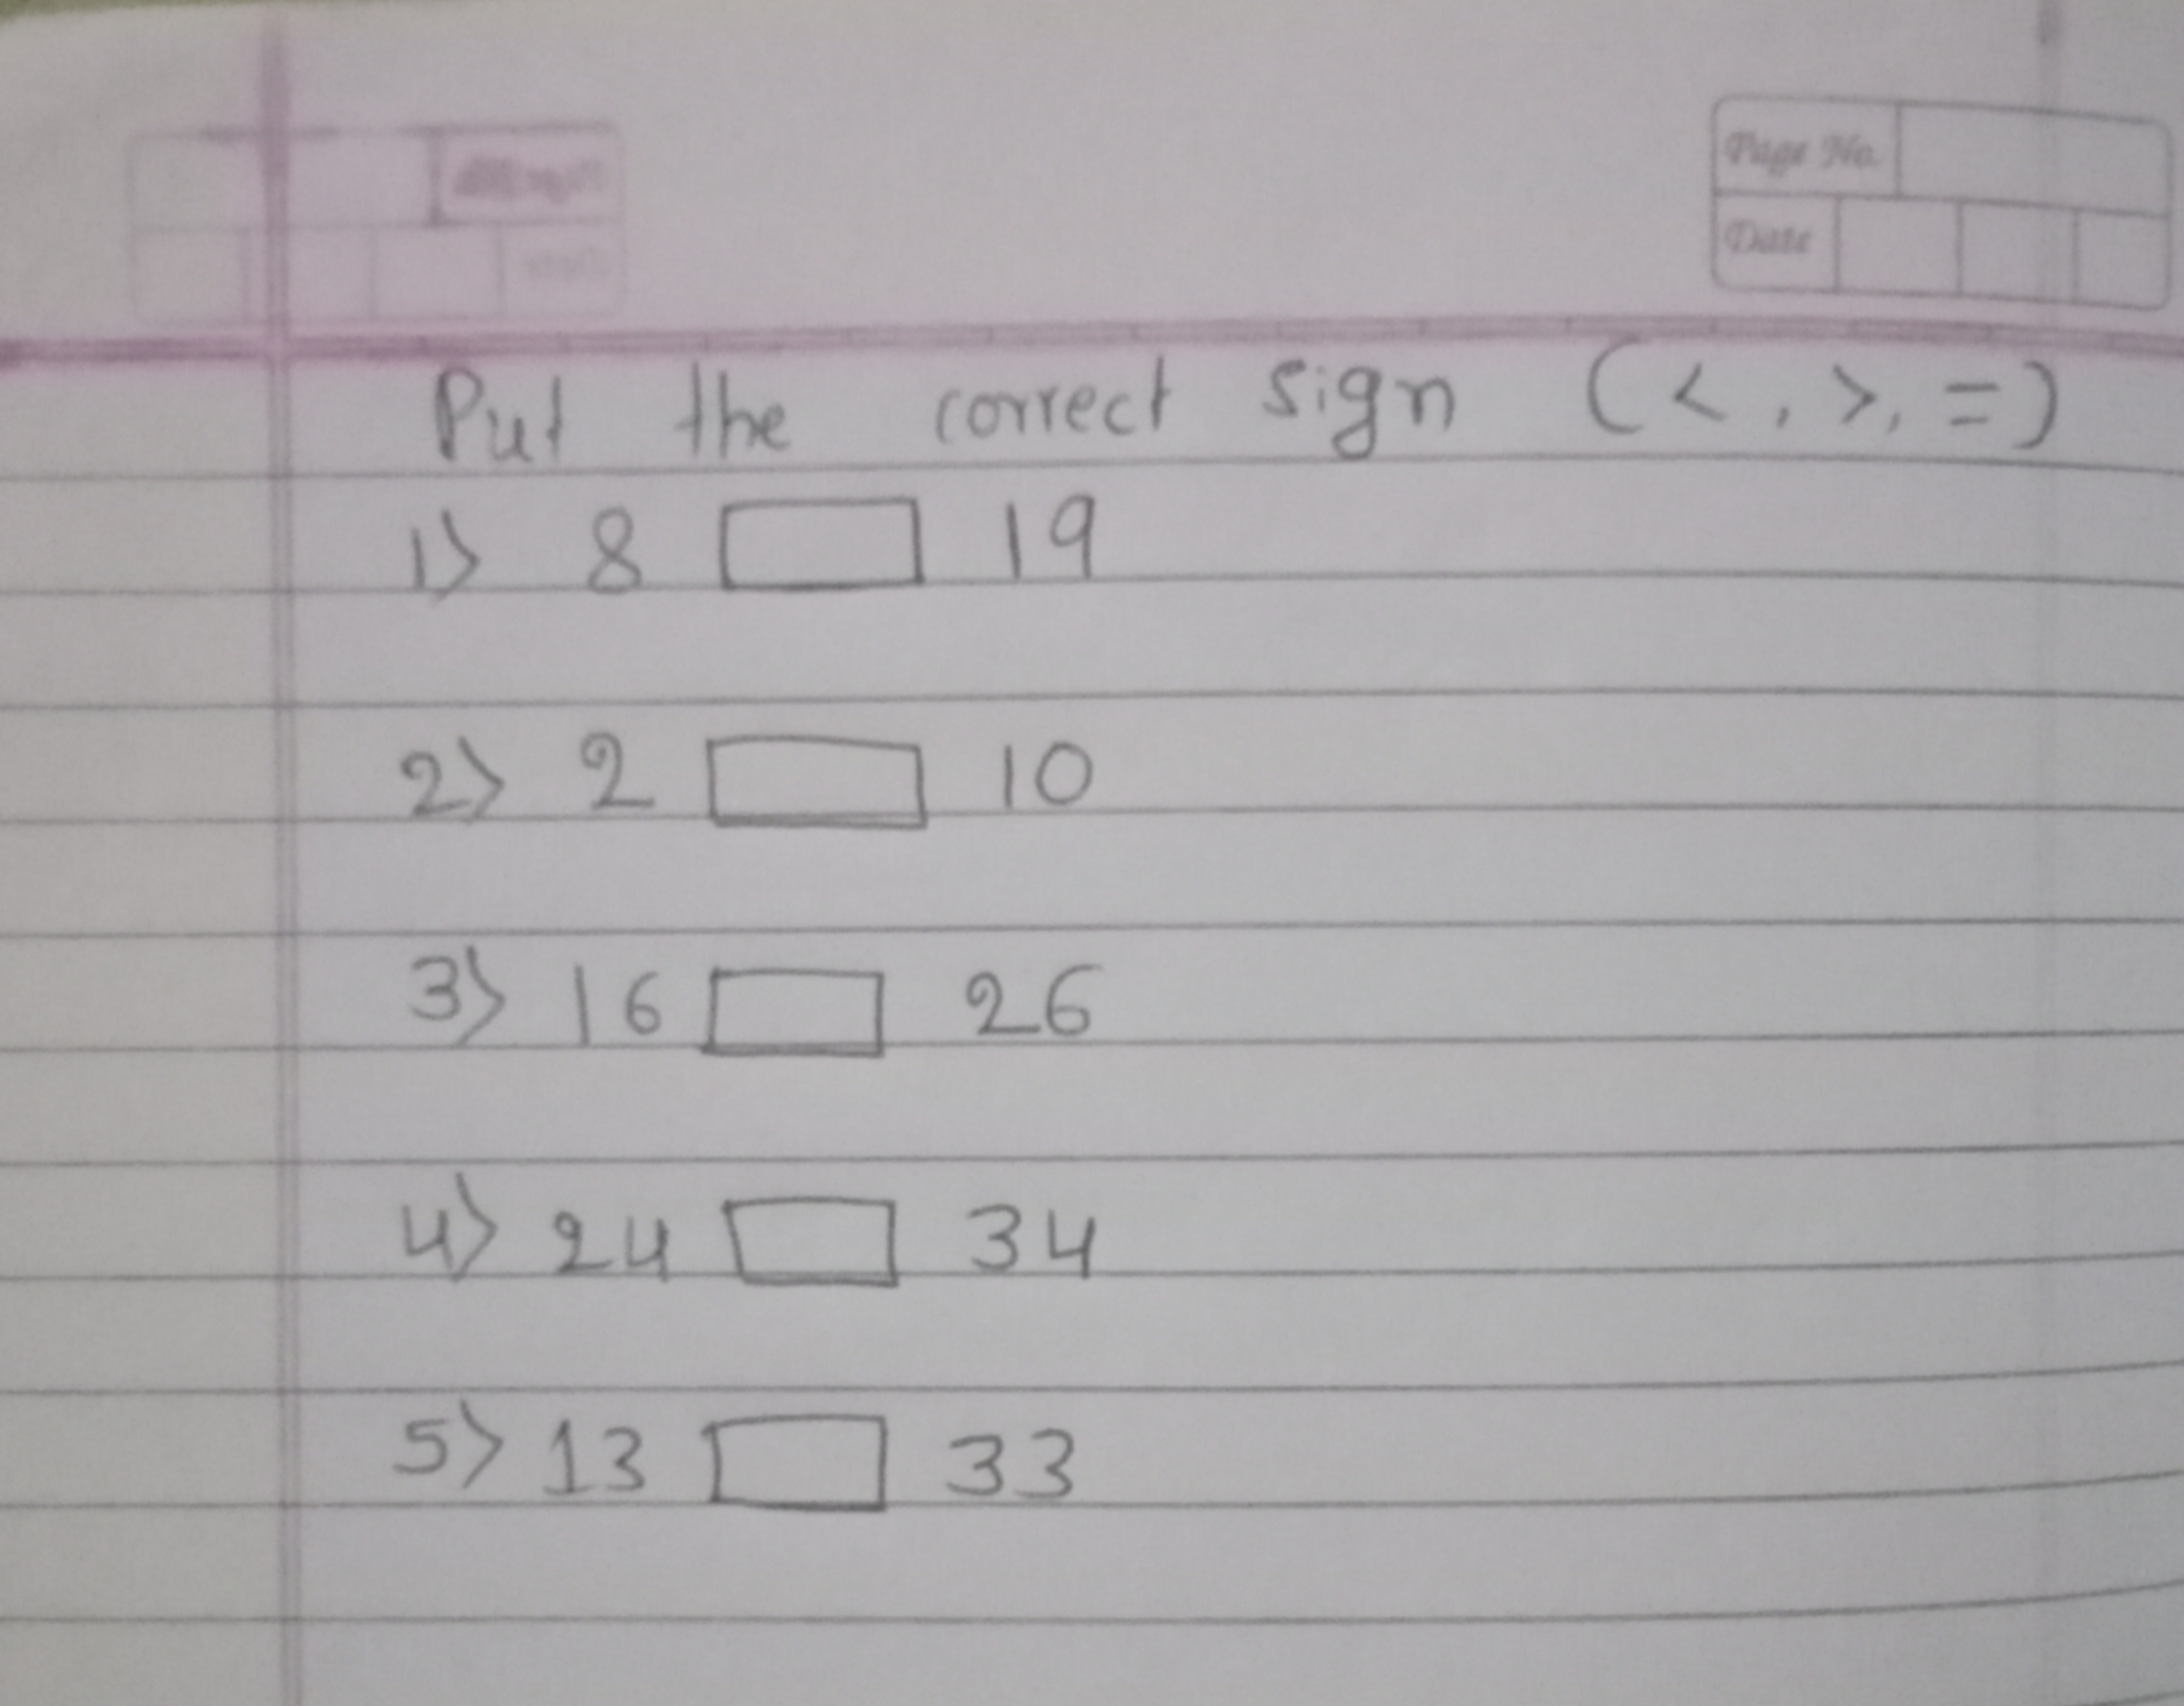 Page No.
Date
Put the correct sign (<, >, =)
1) 8 19
2) 2 10
3) 16 26
4) 24 34
5) 13 33